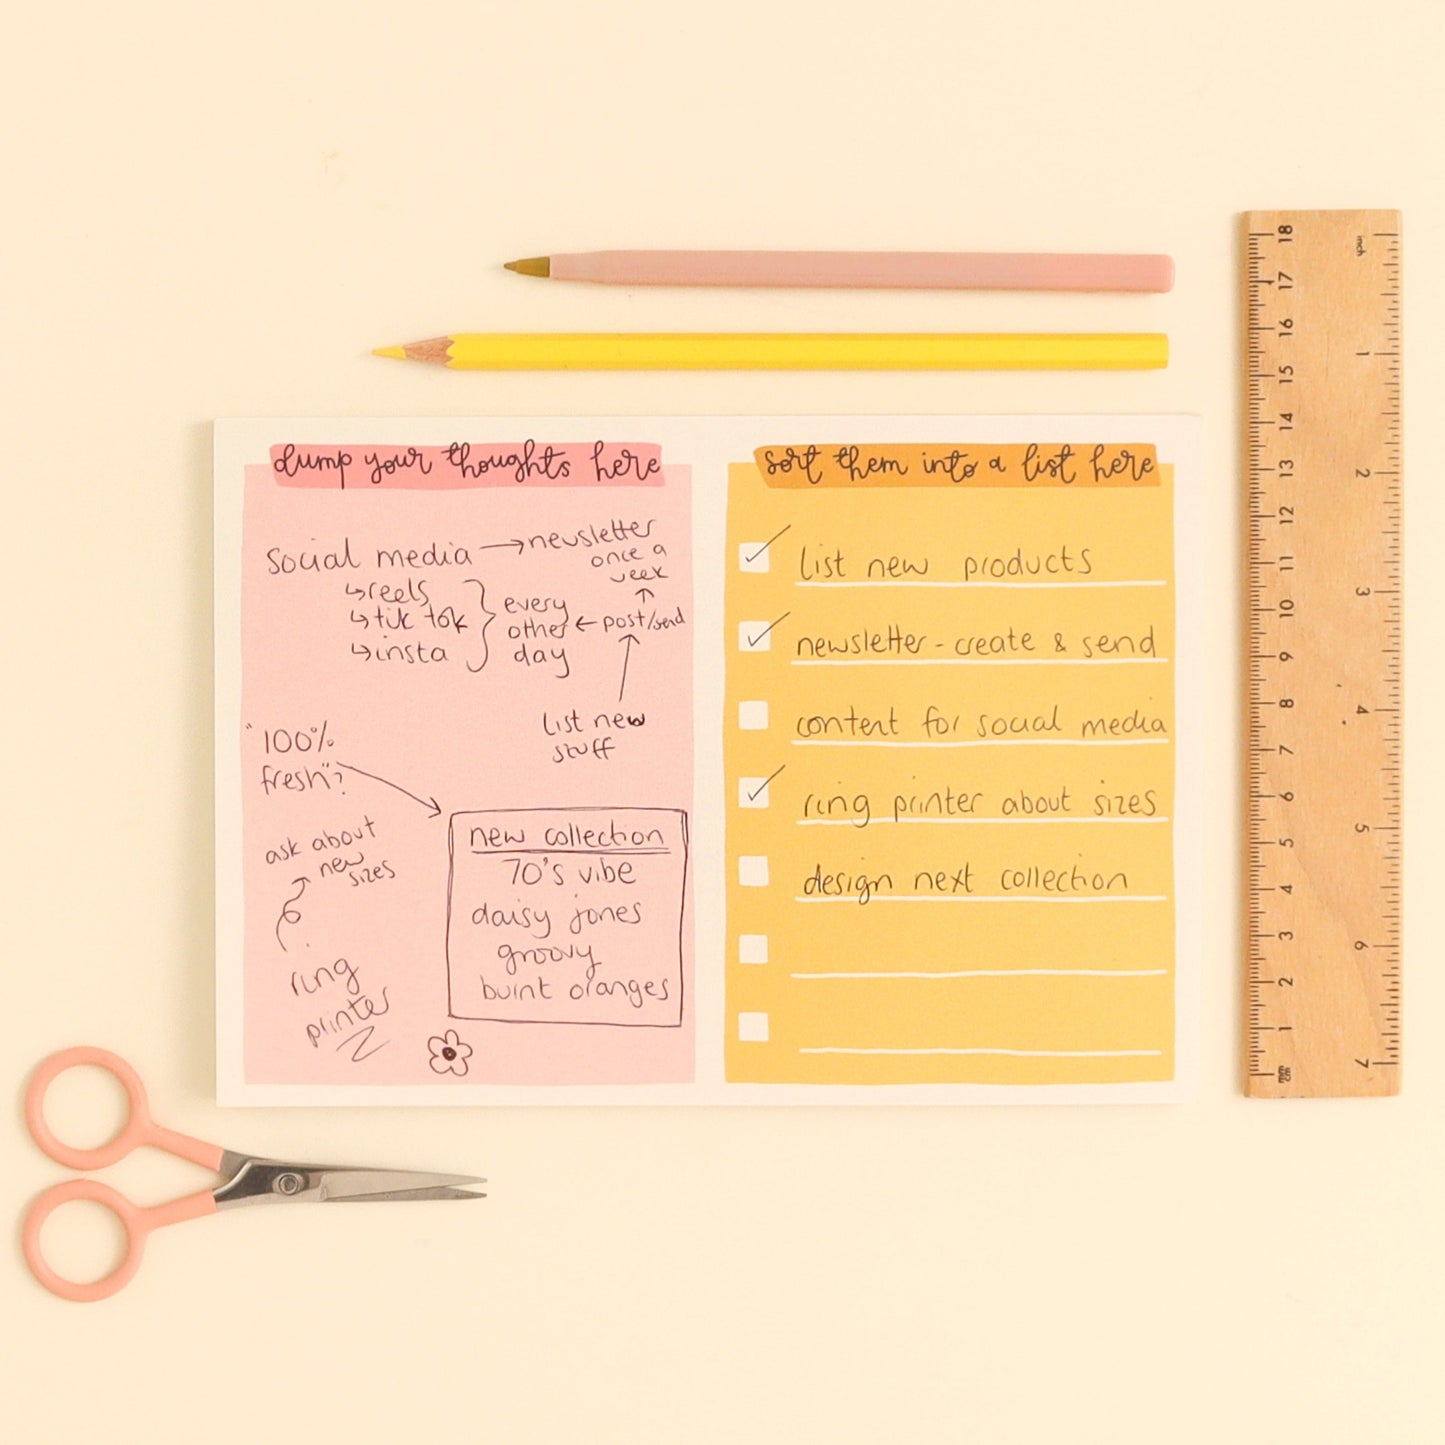 dump your thoughts here
social media → newsletter
once a
week
↳ reels
↳ tik tok
↳ insta
every
other
day
← post/send
list new
stuff
"100%
fresh"?
ask about
new
sizes
ring
printer
new collection
70's vibe
daisy jones
groovy
burnt oranges
sort them into a list here
list new products
newsletter - create & send
content for social media
ring printer about sizes
design next collection
18
17
16
15
14
13
12
11
10
9
8
7
6
5
4
3
2
1
mm
cm
inch
1
2
3
4
5
6
7